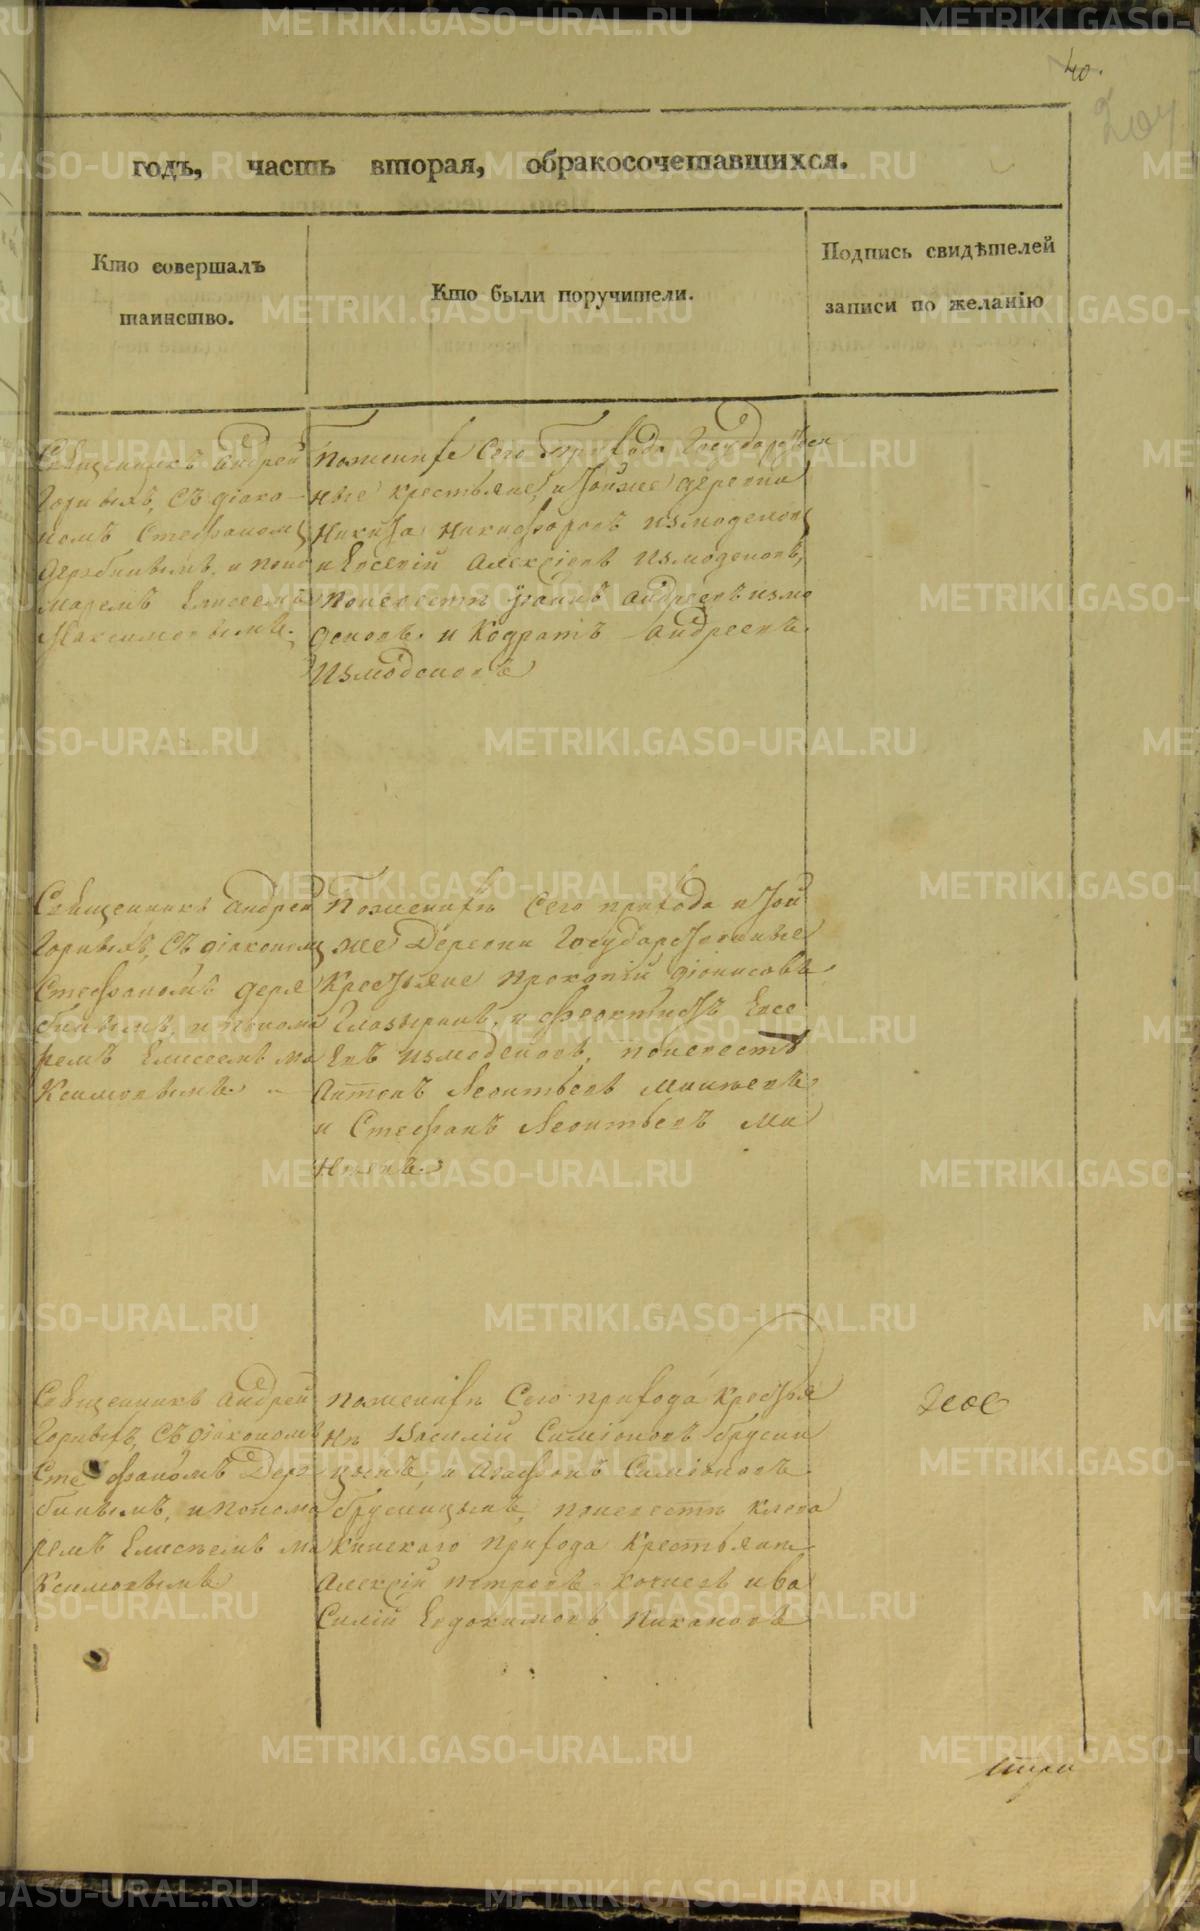 40.
204
годъ, часть вторая, обракосочетавшихся.
Кто совершалъ
таинство.
Кто были поручители.
Подпись свидѣтелей
записи по желанію
Священникъ Андрей
Горныхъ, съ діако-
номъ Стефаномъ
Дерябинымъ, и поно
маремъ Елисеемъ
Максимовымъ.
По женихѣ сего прихода Государствен
ные крестьяне, и тойже деревни
Никита Никифоровъ Измоденовъ
и Евсевій Алексіевъ Измоденовъ,
по невестѣ Іоаннъ Андреевъ Измо
деновъ. и Кодратъ Андреевъ
Измоденовъ
Священникъ Андрей
Горныхъ, съ діакономъ
Стефаномъ Деря
бинымъ, и понома
ремъ Елисеемъ Ма
ксимовымъ.
По женихѣ сего прихода и той
же деревни Государственные
крестьяне Прокопій Діонисовъ
Глазыринъ, и Феоктистъ Евсе
евъ Измоденовъ, по невестѣ
Антонъ Леонтьевъ Минѣевъ
и Стефанъ Леонтьевъ Ми
нѣевъ.
Священникъ Андрей
Горныхъ, съ діакономъ
Стефаномъ Деря
бинымъ, и понома
ремъ Елисѣемъ Ма
ксимовымъ
По женихѣ сего прихода крестья
не Василій Симіоновъ Брусни
цынъ, и Агафонъ Симіоновъ
Брусницынъ, по невестѣ Клева
кинскаго прихода крестьяне
Алексій Петровъ Кочневъ и Ва
силій Евдокимовъ Пикановъ
METRIKI.GASO-URAL.RU